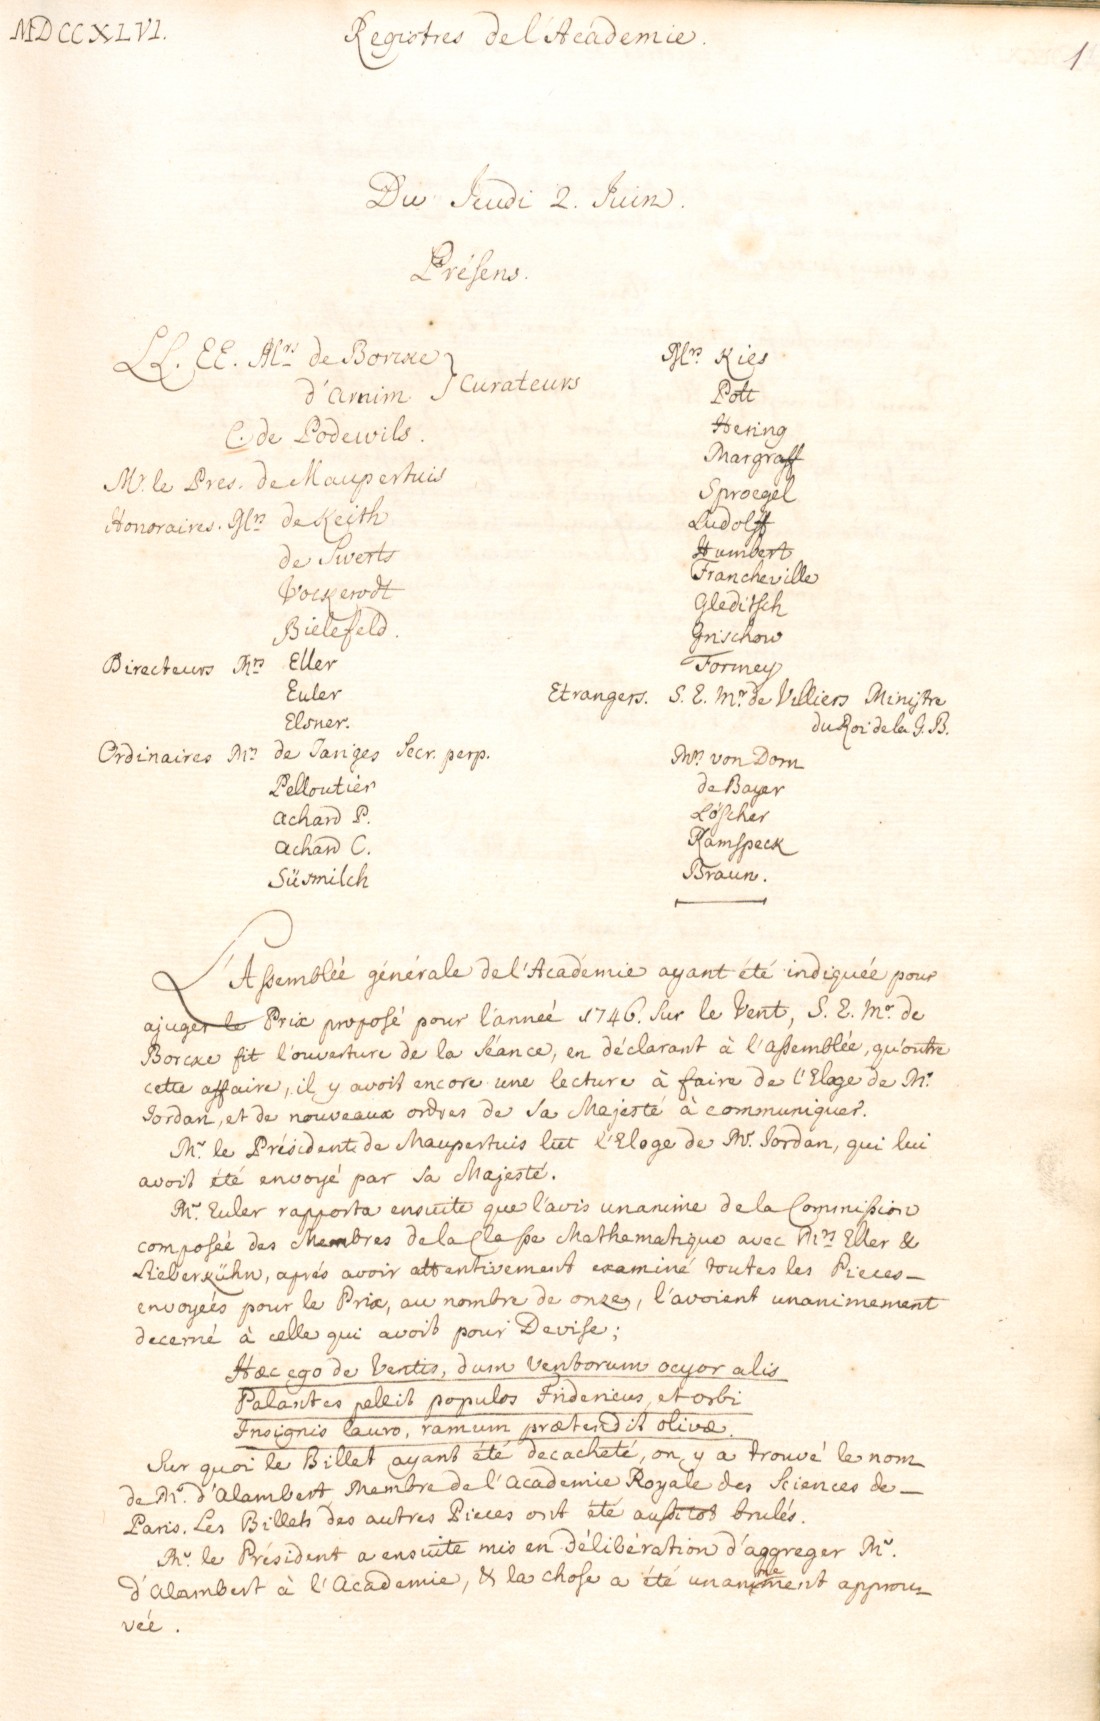 MDCCXLVI.
Registres de l'Académie.
1
Du Jeudi 2. Juin.
Présens.
LL. EE. Mrs de Borcke
d'Arnim
Curateurs
C. de Podewils.
Mr. le Pres. de Maupertuis
Honoraires. Mrs de Keith
de Swerts
Vockerodt
Bielefeld.
Directeurs Mrs Eller
Euler
Elsner.
Ordinaires Mrs de Jariges Secr. perp.
Pelloutier
Achard P.
Achard C.
Süsmilch
Mrs. Kies
Pott
Hering
Margraff
Sproegel
Ludolff
Humbert
Francheville
Gleditsch
Grischow
Formey
Etrangers. S. E. Mr. de Villiers Ministre
du Roi de la G. B.
Mrs. von Dorn
de Bayer
Löscher
Ramspeck
Braun.
L'Assemblée générale de l'Académie ayant été indiquée pour
ajuger le Prix proposé pour l'année 1746. sur le Vent, S. E. Mr. de
Borcke fit l'ouverture de la Séance, en déclarant à l'assemblée, qu'outre
cette affaire, il y avoit encore une lecture à faire de l'Eloge de Mr.
Jordan, et de nouveaux ordres de Sa Majesté à communiquer.
Mr. le Président de Maupertuis lut l'Eloge de Mr. Jordan, qui lui
avoit été envoyé par Sa Majesté.
Mr. Euler rapporta ensuite que l'avis unanime de la Commission
composée des Membres de la Classe Mathematique avec Mrs Eller &
Lieberkühn, aprés avoir attentivement examiné toutes les Pieces
envoyées pour le Prix, au nombre de onze, l'avoient unanimement
decerné à celle qui avoit pour Devise;
Hæc ego de Ventis, dum Ventorum ocyor alis
Palantes pellit populos Fridericus, et orbi
Insignis lauro, ramum prætendit olivæ.
Sur quoi le Billet ayant été decacheté, on y a trouvé le nom
de Mr. d'Alambert Membre de l'Academie Royale des Sciences de
Paris. Les Billets des autres Pieces ont été aussitot brulés.
Mr. le Président a ensuite mis en délibération d'aggreger Mr.
d'Alambert à l'Academie, & la chose a été unanimement approu-
vée.